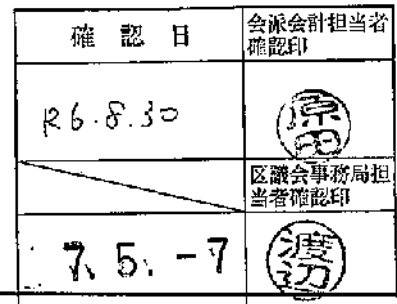 確認日
会派会計担当者
確認印
R6.8.30
原田
区議会事務局担
当者確認印
7.5.-7
渡辺